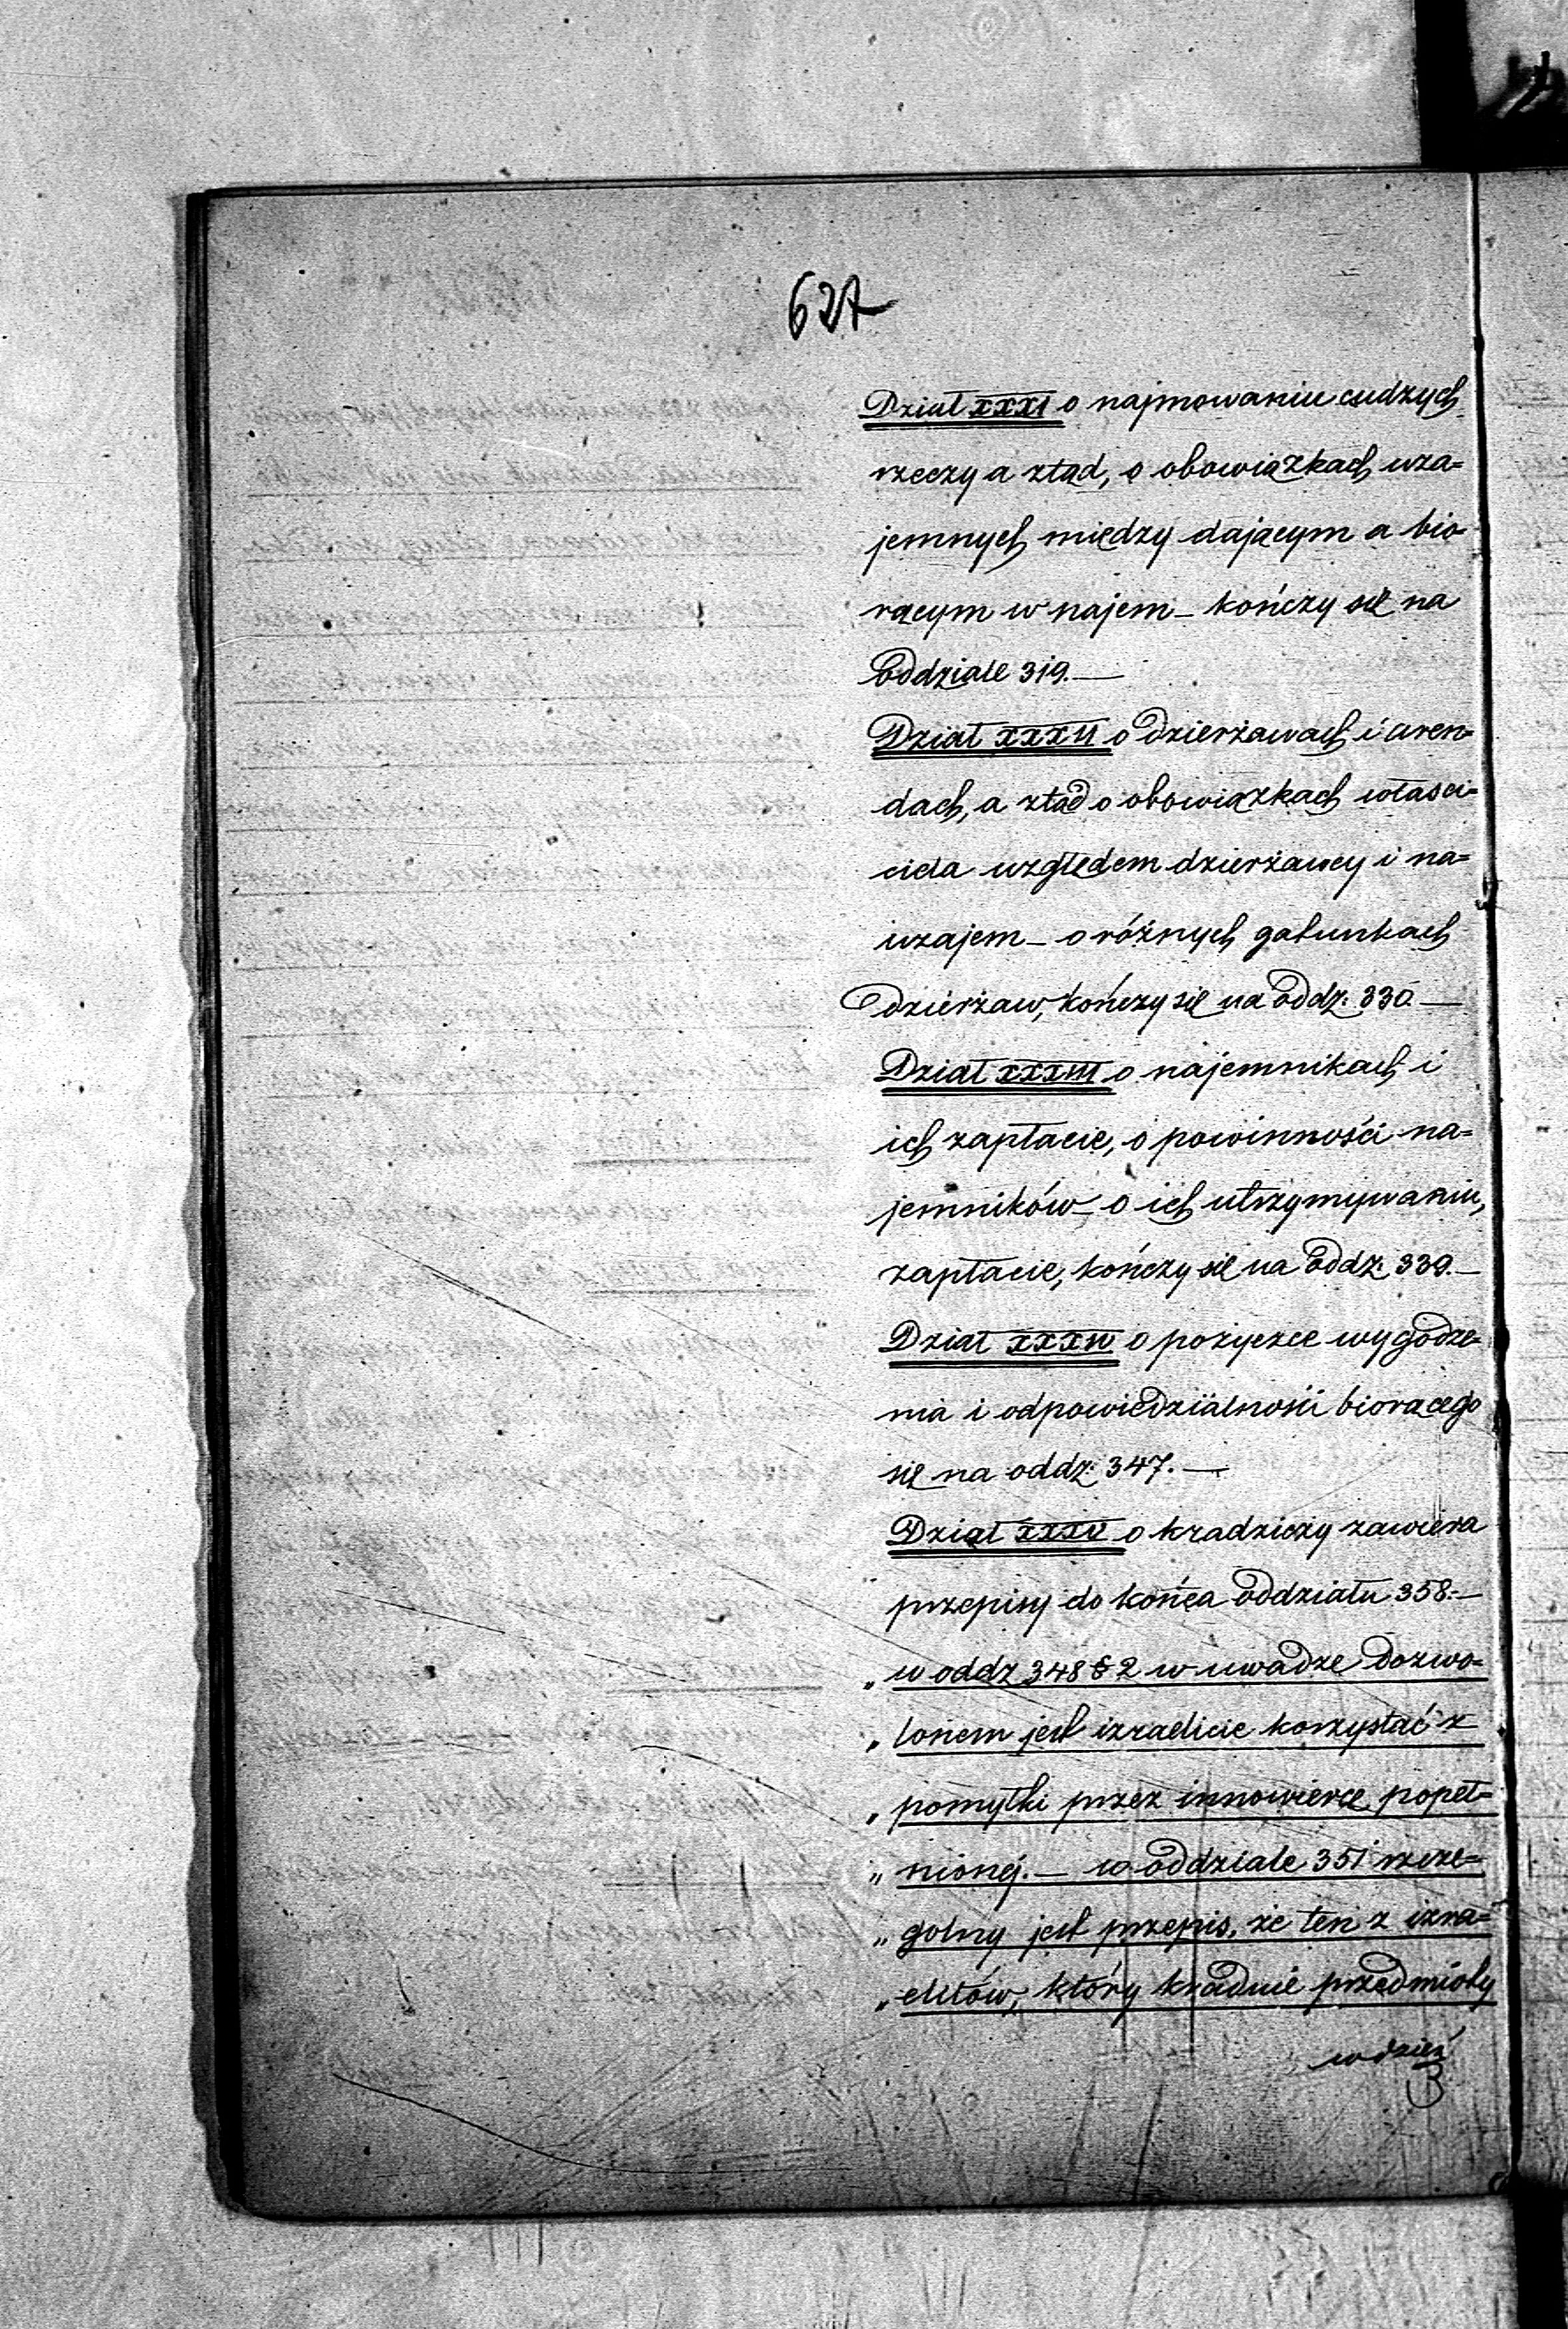 627
Dział XXXI o najmowaniu cudzych
rzeczy a ztąd, o obowiązkach wza=
jemnych między dającym a bio=
rącym w najem – kończy się na
Oddziale 319. —
Dział XXXII o dzierżawach i aren=
dach, a ztąd o obowiązkach właści=
ciela względem dzierżawcy i na=
wzajem – o różnych gatunkach
dzierżaw, kończy się na Oddz. 330 —
Dział XXXIII o najemnikach i
ich zapłacie, o powinności na=
jemników – o ich utrzymywaniu,
zapłacie, kończy się na Oddz. 339. —
Dział XXXIV o pożyczce wygodze=
nia i odpowiedzialności biorącego
się na oddz. 347. —
Dział XXXV o kradzieży zawiera
przepisy do końca Oddziału 358. —
„ w oddz 348 § 2 w uwadze dozwo=
„ lonem jest izraelicie korzystać z
„ pomyłki przez innowiercę popeł=
„ nionéj. — w Oddziale 351 szcze=
„ golny jest przepis, że ten z izra=
„ elitów, który kradnie przedmioty
w dzień